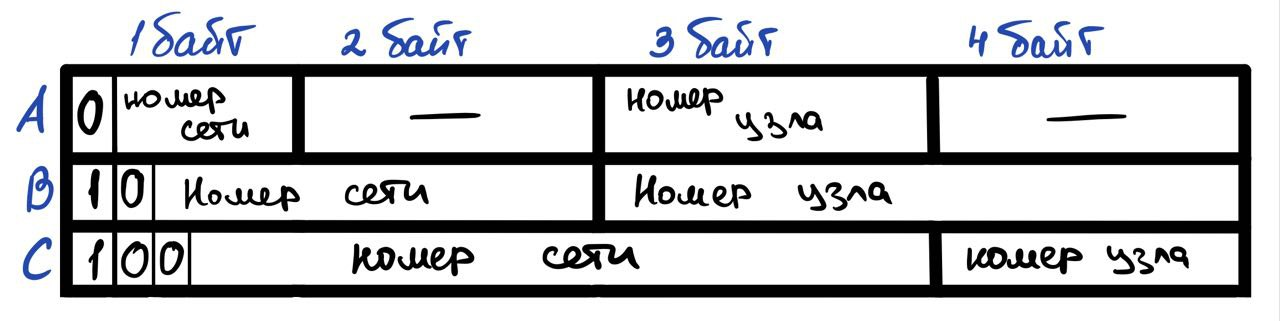 1 байт 2 байт 3 байт 4 байт
A 0 номер сети — номер узла —
B 1 0 Номер сети Номер узла
C 1 0 0 номер сети номер узла